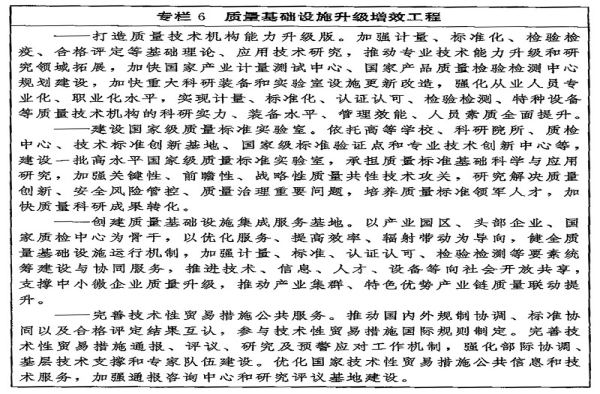 专栏 6　质量基础设施升级增效工程
——打造质量技术机构能力升级版。加强计量、标准化、检验检
疫、合格评定等基础理论、应用技术研究，推动专业技术能力升级和研
究领域拓展，加快国家产业计量测试中心、国家产品质量检验检测中心
规划建设，加快重大科研装备和实验室设施更新改造，强化从业人员专
业化、职业化水平，实现计量、标准化、认证认可、检验检测、特种设备
等质量技术机构的科研实力、装备水平、管理效能、人员素质全面提升。
——建设国家级质量标准实验室。依托高等学校、科研院所、质检
中心、技术标准创新基地、国家级标准验证点和专业技术创新中心等，
建设一批高水平国家级质量标准实验室，承担质量标准基础科学与应用
研究，加强关键性、前瞻性、战略性质量共性技术攻关，研究解决质量
创新、安全风险管控、质量治理重要问题，培养质量标准领军人才，加
快质量科研成果转化。
——创建质量基础设施集成服务基地。以产业园区、头部企业、国
家质检中心为骨干，以优化服务、提高效率、辐射带动为导向，健全质
量基础设施运行机制，加强计量、标准、认证认可、检验检测等要素统
筹建设与协同服务，推进技术、信息、人才、设备等向社会开放共享，
支撑中小微企业质量升级，推动产业集群、特色优势产业链质量联动提
升。
——完善技术性贸易措施公共服务。推动国内外规制协调、标准协
同以及合格评定结果互认，参与技术性贸易措施国际规则制定。完善技
术性贸易措施通报、评议、研究及预警应对工作机制，强化部际协调、
基层技术支撑和专家队伍建设。优化国家技术性贸易措施公共信息和技
术服务，加强通报咨询中心和研究评议基地建设。